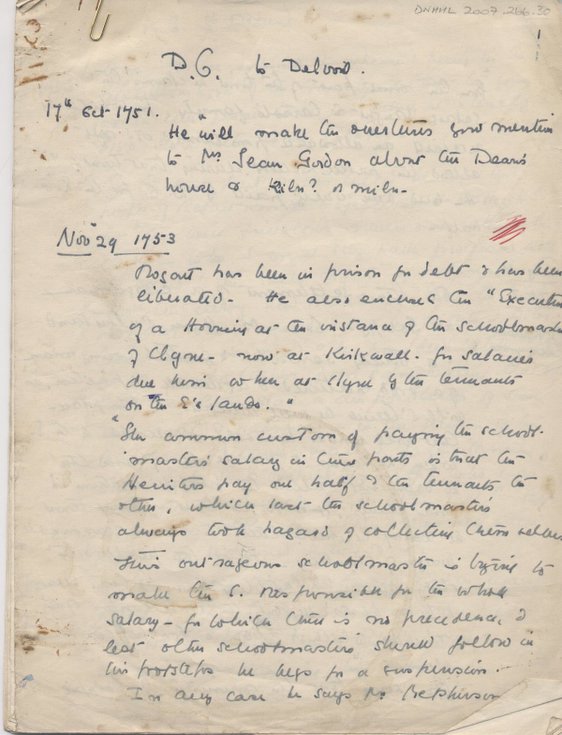 DNHHL 2007.266.30
1
D.G. to Delvoir.
17th Oct 1751.
He "will make the overtures you mention
to Mrs Jean Gordon about the Dean's
house & Kiln? or miln -
Nov 29 1753
Rogart has been in prison for debt & has been
liberated - He also enclosed the "Execution
of a Horning at the instance of the schoolmaster
of Clyne - now at Kirkwall - for salaries
due him when at Clyne by the tennants
on the E's lands."
"The common custom of paying the school-
masters salary in these parts is that the
Heritors pay one half & the tennants the
other, which last the schoolmasters
always took hazard of collecting themselves
This outrageous schoolmaster is trying to
make the E. responsible for the whole
salary - for which there is no precedence, &
lest other schoolmasters should follow in
his footsteps he begs for a suspension.
In any case he says Mr